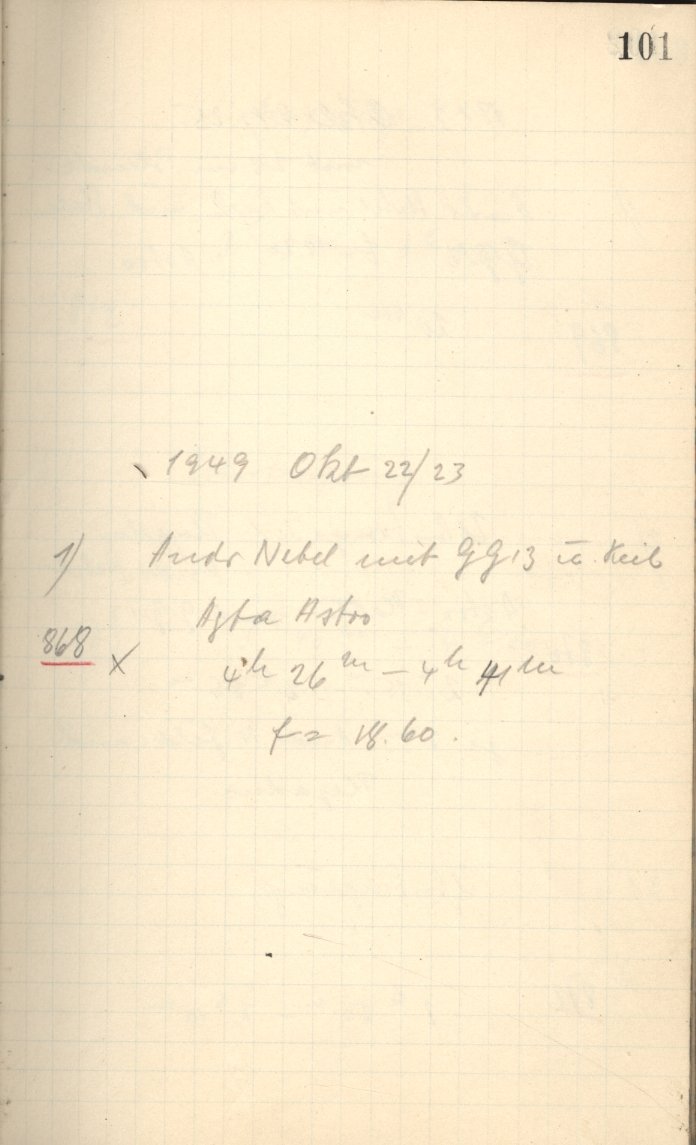 101
1949 Okt 22/23
1) Andr Nebel mit GG 13 u. Keil
Agfa Astro
868 x 4h 26m – 4h 41m
f = 18.60.